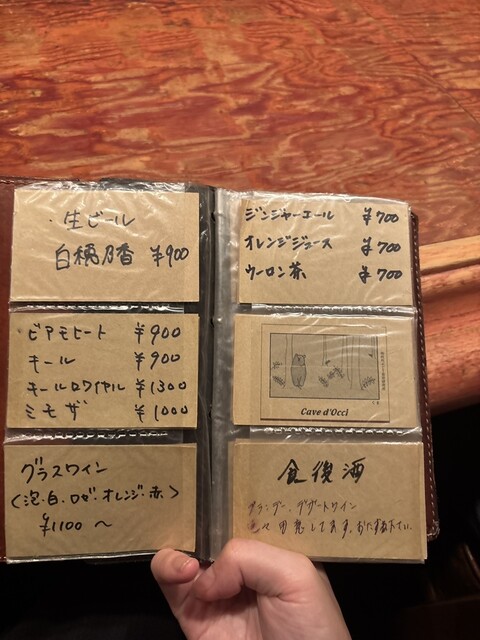 ・生ビール
白穂乃香 ¥900
ビアモヒート ¥900
キール ¥900
キールロワイヤル ¥1300
ミモザ ¥1000
グラスワイン
(泡・白・ロゼ・オレンジ・赤)
¥1100 〜
ジンジャーエール ¥700
オレンジジュース ¥700
ウーロン茶 ¥700
Cave d'Occi
食後酒
ブランデー、デザートワイン
色々用意してます。おたずね下さい。